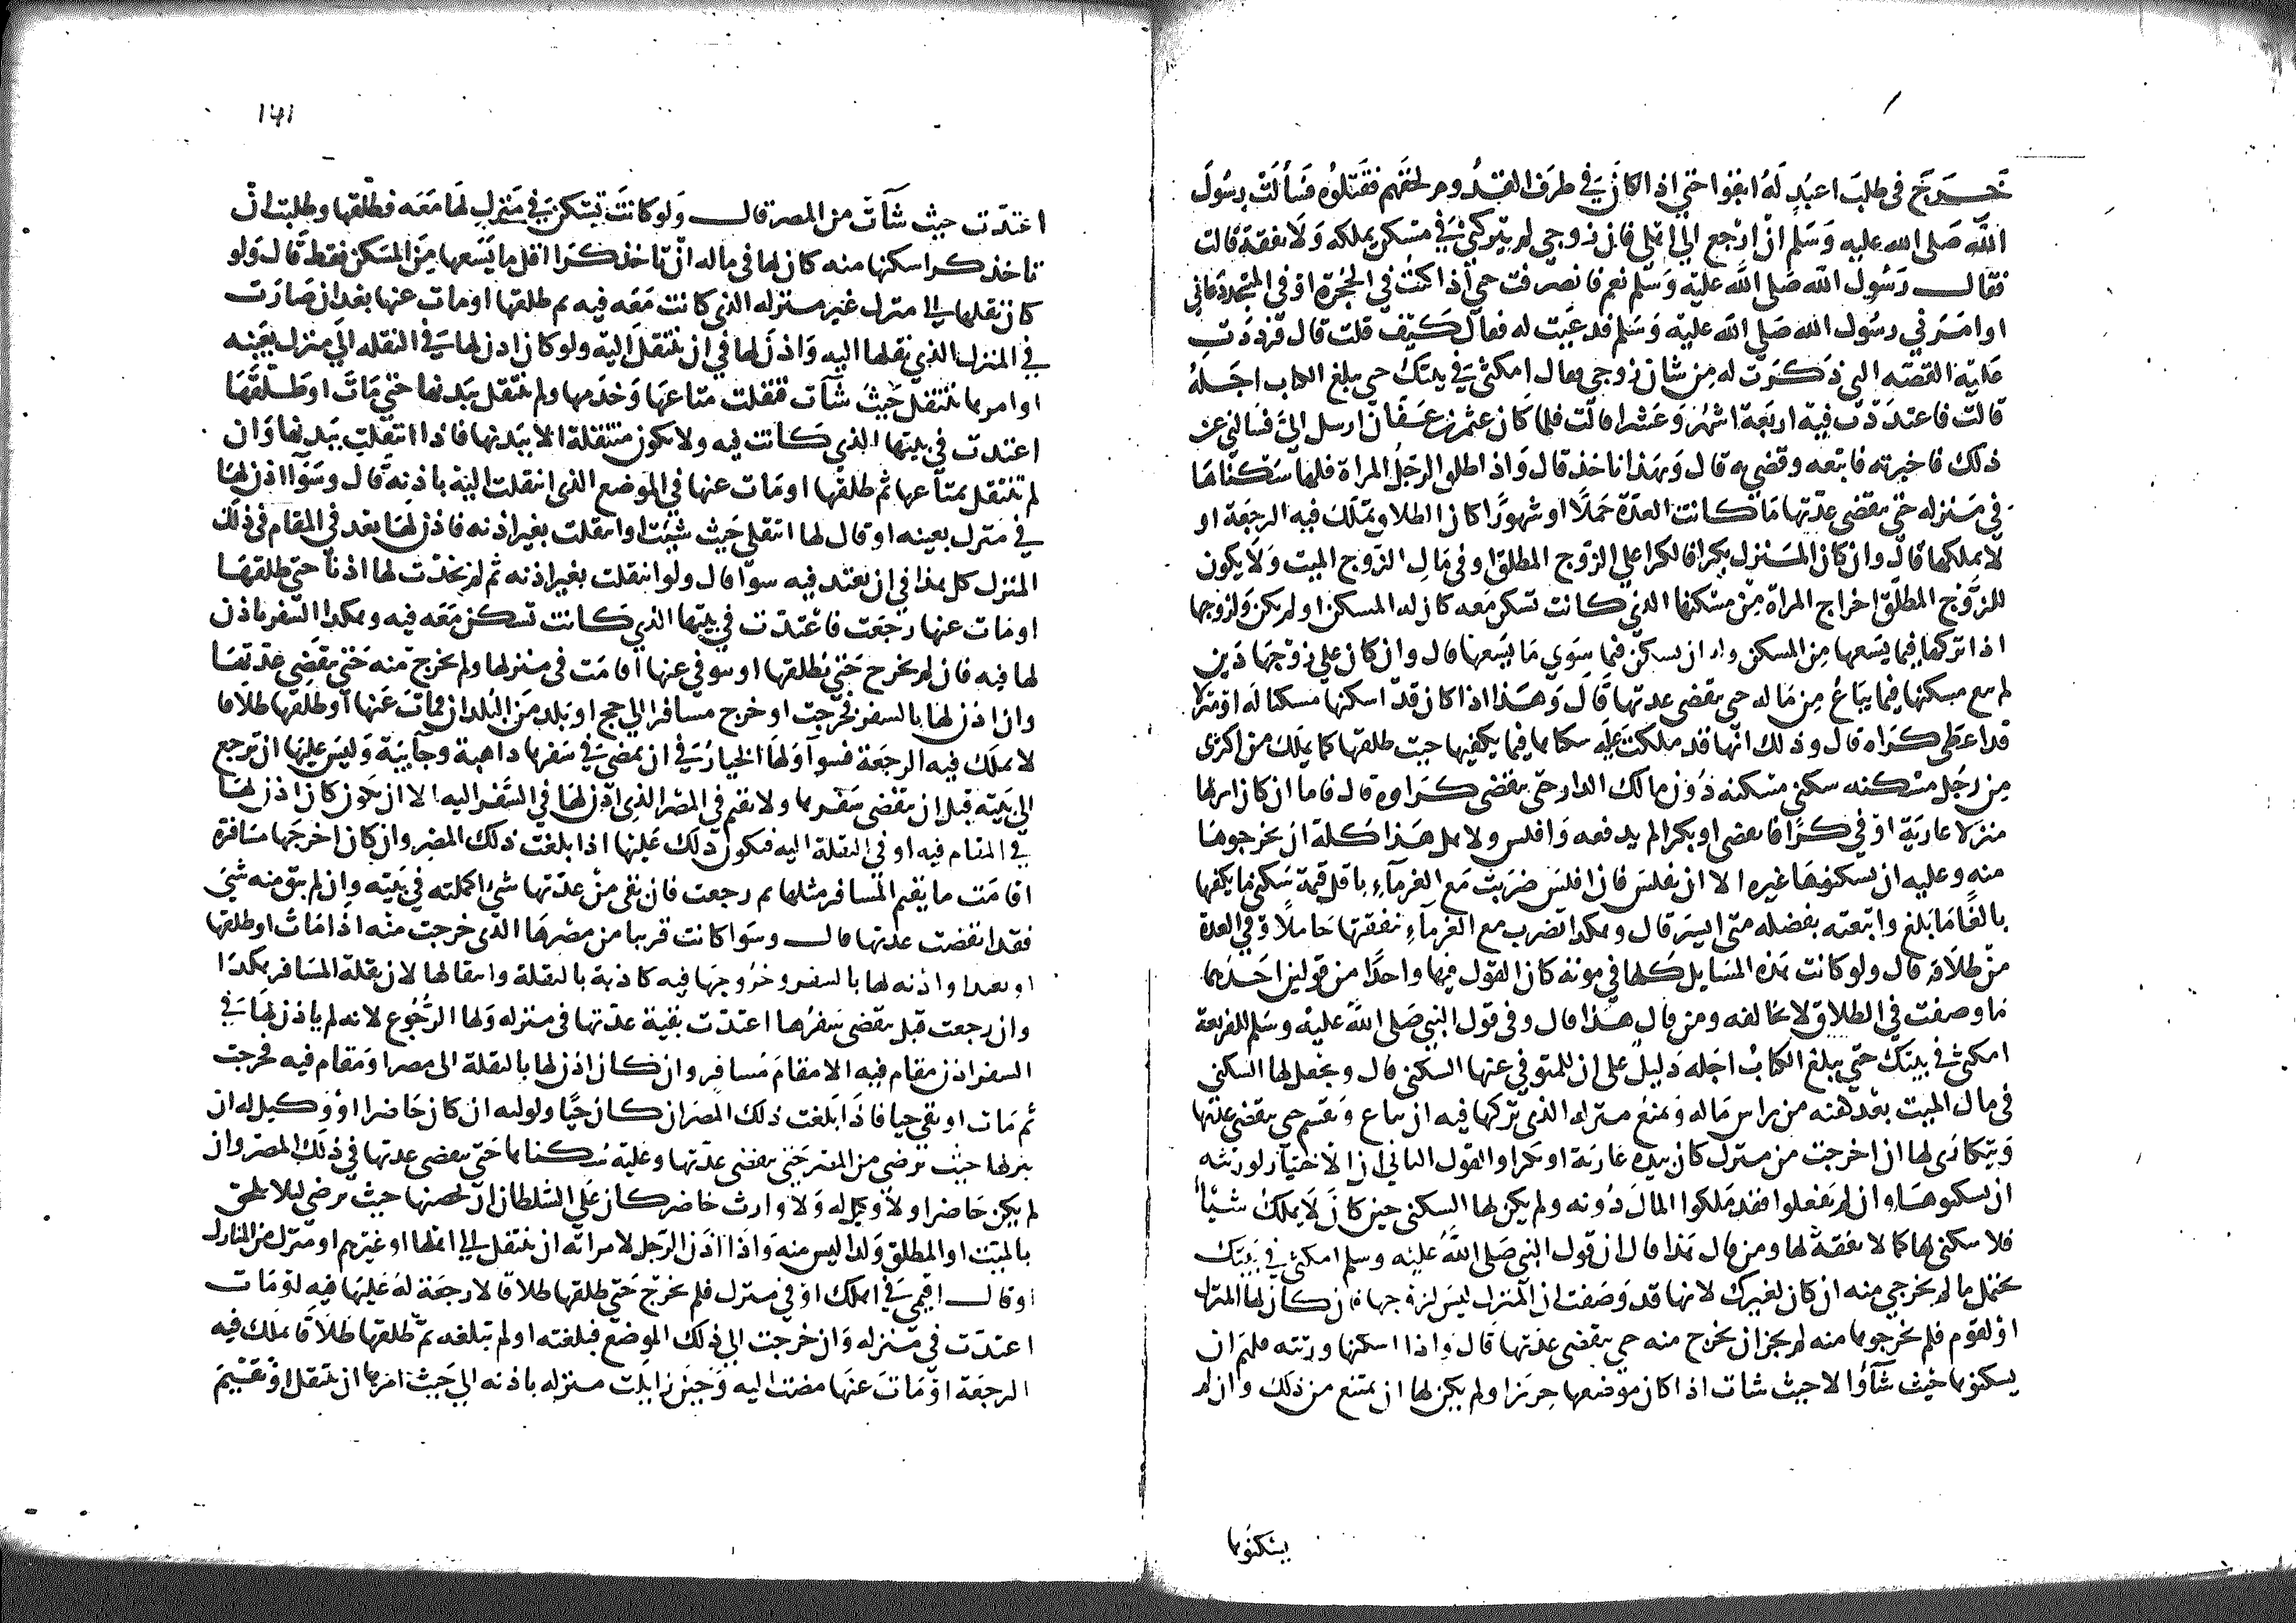 خرج في طلب اعبد له ابقوا حتى اذا كان في طرف القدوم لحقهم فقتلوه فسألت رسول
الله صلى الله عليه وسلم ان ارجع الى اهلي فان زوجي لم يتركني في مسكن يملكه ولا نفقة قالت
فقال رسول الله صلى الله عليه وسلم نعم فانصرفت حتى اذا كنت في الحجرة او في المسجد دعاني
او امر في رسول الله صلى الله عليه وسلم فدعيت له فقال كيف قلت قال فرددت
عليه القصة التي ذكرت له من شان زوجي فقال امكثي في بيتك حتى يبلغ الكتاب اجله
قالت فاعتددت فيه اربعة اشهر وعشرا قالت فلما كان عثمن بن عفان ارسل الي فسالني عن
ذلك فاخبرته فاتبعه وقضى به قال وبهذا ناخذ قال واذا طلق الرجل المراة فلها سكناها
في منزله حتى تنقضي عدتها ما كانت العدة حملا او شهورا كان الطلاق يملك فيه الرجعة او
لا يملكها قال وان كان المنزل بكرا فالكرا على الزوج المطلق او في مال الزوج الميت ولا يكون
للزوج المطلق اخراج المراة من مسكنها الذي كانت تسكن معه كان له المسكن او لم يكن ولزوجها
اذا تركها فيما يسعها من المسكن وله ان يسكن فيما سوى ما يسعها قال وان كان على زوجها دين
لم يبع مسكنها فيما يباع من ماله حتى تنقضي عدتها قال وهذا اذا كان قد اسكنها مسكنا له او منزلا
قد اعطى كراه قال وذلك انها قد ملكت عليه سكناها فيما يكفيها حيث طلقها كما يملك من اكترى
من رجل مسكنه سكنى مسكنه دون مالك الدار حتى ينقضي كراوه قال فاما ان كان انزلها
منزلا عارية او في كرا فانقضى او بكرا لم يدفعه وافلس ولاهل هذا كله ان يخرجوها
منه وعليه ان يسكنها غيره الا ان يفلس فان افلس ضربت مع الغرماء باقل قيمة سكنى ما يكفيها
بالغا ما بلغ واتبعته بفضله متى ايسر قال وهكذا تضرب مع الغرماء بنفقتها حاملا وفي العدة
من طلاقه قال ولو كانت هذه المسايل كلها في موته كان القول فيها واحدا من قولين احدهما
ما وصفت في الطلاق لا يخالفه ومن قال هذا قال وفي قول النبي صلى الله عليه وسلم للفريعة
امكثي في بيتك حتى يبلغ الكتاب اجله دليل على ان للمتوفى عنها السكنى قال ويجعل لها السكنى
في مال الميت بعد كفنه من راس ماله ويمنع منزله الذي تركها فيه ان يباع ويقسم حتى تنقضي عدتها
ويتكارى لها ان اخرجت من منزل كان بيده عارية او بكرا والقول الثاني ان الاختيار لورثته
ان يسكنوها وان لم يفعلوا فقد ملكوا المال دونه ولم يكن لها السكنى حين كان لا يملك شيئا
فلا سكنى لها كما لا نفقة لها ومن قال هذا قال ان قول النبي صلى الله عليه وسلم امكثي في بيتك
يحتمل ما لم تخرجي منه ان كان لغيرك لانها قد وصفت ان المنزل ليس لزوجها فان كان لها المنزل
او لقوم فلم يخرجوها منه لم يجز ان تخرج منه حتى تنقضي عدتها قال واذا اسكنها ورثته فلهم ان
يسكنوها حيث شآؤا لا حيث شات اذا كان موضعها حريزا ولم يكن لها ان تمتنع من ذلك وان لم
يسكنوها
١٧١
اعتدت حيث شآت من المصر قال ولو كانت تسكن في منزل لها معه فطلقها وطلبت ان
تاخذ كرا سكنها منه كان لها في ماله ان تاخذ كرا اقل ما يسعها من المسكن فقط قال ولو
كان نقلها الى منزل غير منزله الذي كانت معه فيه ثم طلقها او مات عنها بعد ان صارت
في المنزل الذي نقلها اليه واذن لها في ان تنتقل اليه ولو كان اذن لها في النقله الى منزل بعينه
او امرها تنتقل حيث شآت فنقلت متاعها وخدمها ولم تنتقل ببدنها حتى مات او طلقها
اعتدت في بيتها الذي كانت فيه ولا تكون منتقلة الا ببدنها فاذا انتقلت ببدنها وان
لم تنتقل بمتاعها ثم طلقها او مات عنها في الموضع الذي انتقلت اليه باذنه قال وسوآ اذن لها
في منزل بعينه او قال لها انتقلي حيث شيت او انتقلت بغير اذنه فاذن لها بعد في المقام في ذلك
المنزل كل هذا في ان تعتد فيه سوآ قال ولو انتقلت بغير اذنه ثم لم يحدث لها اذنا حتى طلقها
او مات عنها رجعت فاعتدت في بيتها الذي كانت تسكن معه فيه وهكذا السفر ياذن
لها فيه فان لم تخرج حتى يطلقها او يتوفى عنها اقامت في منزلها ولم تخرج منه حتى تنقضي عدتها
وان اذن لها بالسفر فخرجت او خرج مسافرا الى حج او بلد من البلدان فمات عنها او طلقها طلاقا
لا يملك فيه الرجعة فسوآ ولها الخيار في ان تمضي في سفرها ذاهبة وجآيية وليس عليها ان ترجع
الى بيته قبل ان ينقضي سفرها ولا تقيم في المصر الذي اذن لها في السفر اليه الا ان يكون كان اذن لها
في المقام فيه او في النقلة اليه فيكون ذلك عليها اذا بلغت ذلك المصر وان كان اخرجها مسافرة
اقامت ما يقيم المسافر مثلها ثم رجعت فان بقي من عدتها شئ اكملته في بيته وان لم يبق منه شئ
فقد انقضت عدتها قال وسوا كانت قريبا من مصرها الذي خرجت منه اذا مات او طلقها
او بعدا واذنه لها بالسفر وخروجها فيه كاذنه بالنقلة وانتقالها لان نقلة المسافر هكذا
وان رجعت قبل ينقضي سفرها اعتدت بقية عدتها في منزله ولها الرجوع لانه لم ياذن لها في
السفر اذن مقام فيه الا مقام مسافر وان كان اذن لها بالنقلة الى مصر او مقام فيه فخرجت
ثم مات او بقي حيا فاذا بلغت ذلك المصر ان كان حيا ولوليه ان كان حاضرا او وكيل له ان
ينزلها حيث يرضى من المصر حتى تنقضي عدتها وعليه سكناها حتى تنقضي عدتها في ذلك المصر وان
لم يكن حاضرا ولا وكيل له ولا وارث حاضر كان على السلطان ان يحصنها حيث يرضى ليلا يلحق
بالميت او المطلق ولدا ليس منه واذا اذن الرجل لامراته ان تنتقل الى اهلها او غيرهم او منزل من المنازل
او قال اقيمي في اهلك او في منزل فلم تخرج حتى طلقها طلاقا لا رجعة له عليها فيه او مات
اعتدت في منزله وان خرجت الى ذلك الموضع فبلغته او لم تبلغه ثم طلقها طلاقا يملك فيه
الرجعة او مات عنها مضت اليه وحين زايلت منزله باذنه الى حيث امرها ان تنتقل او تقيم